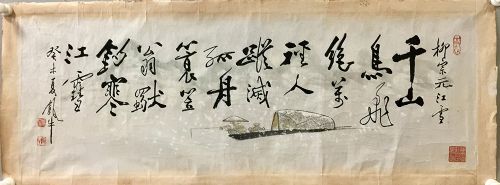 柳宗元江雪
千山
鳥飛
絕萬
徑人
蹤滅
孤舟
蓑笠
翁獨
釣寒
江雪
癸未夏